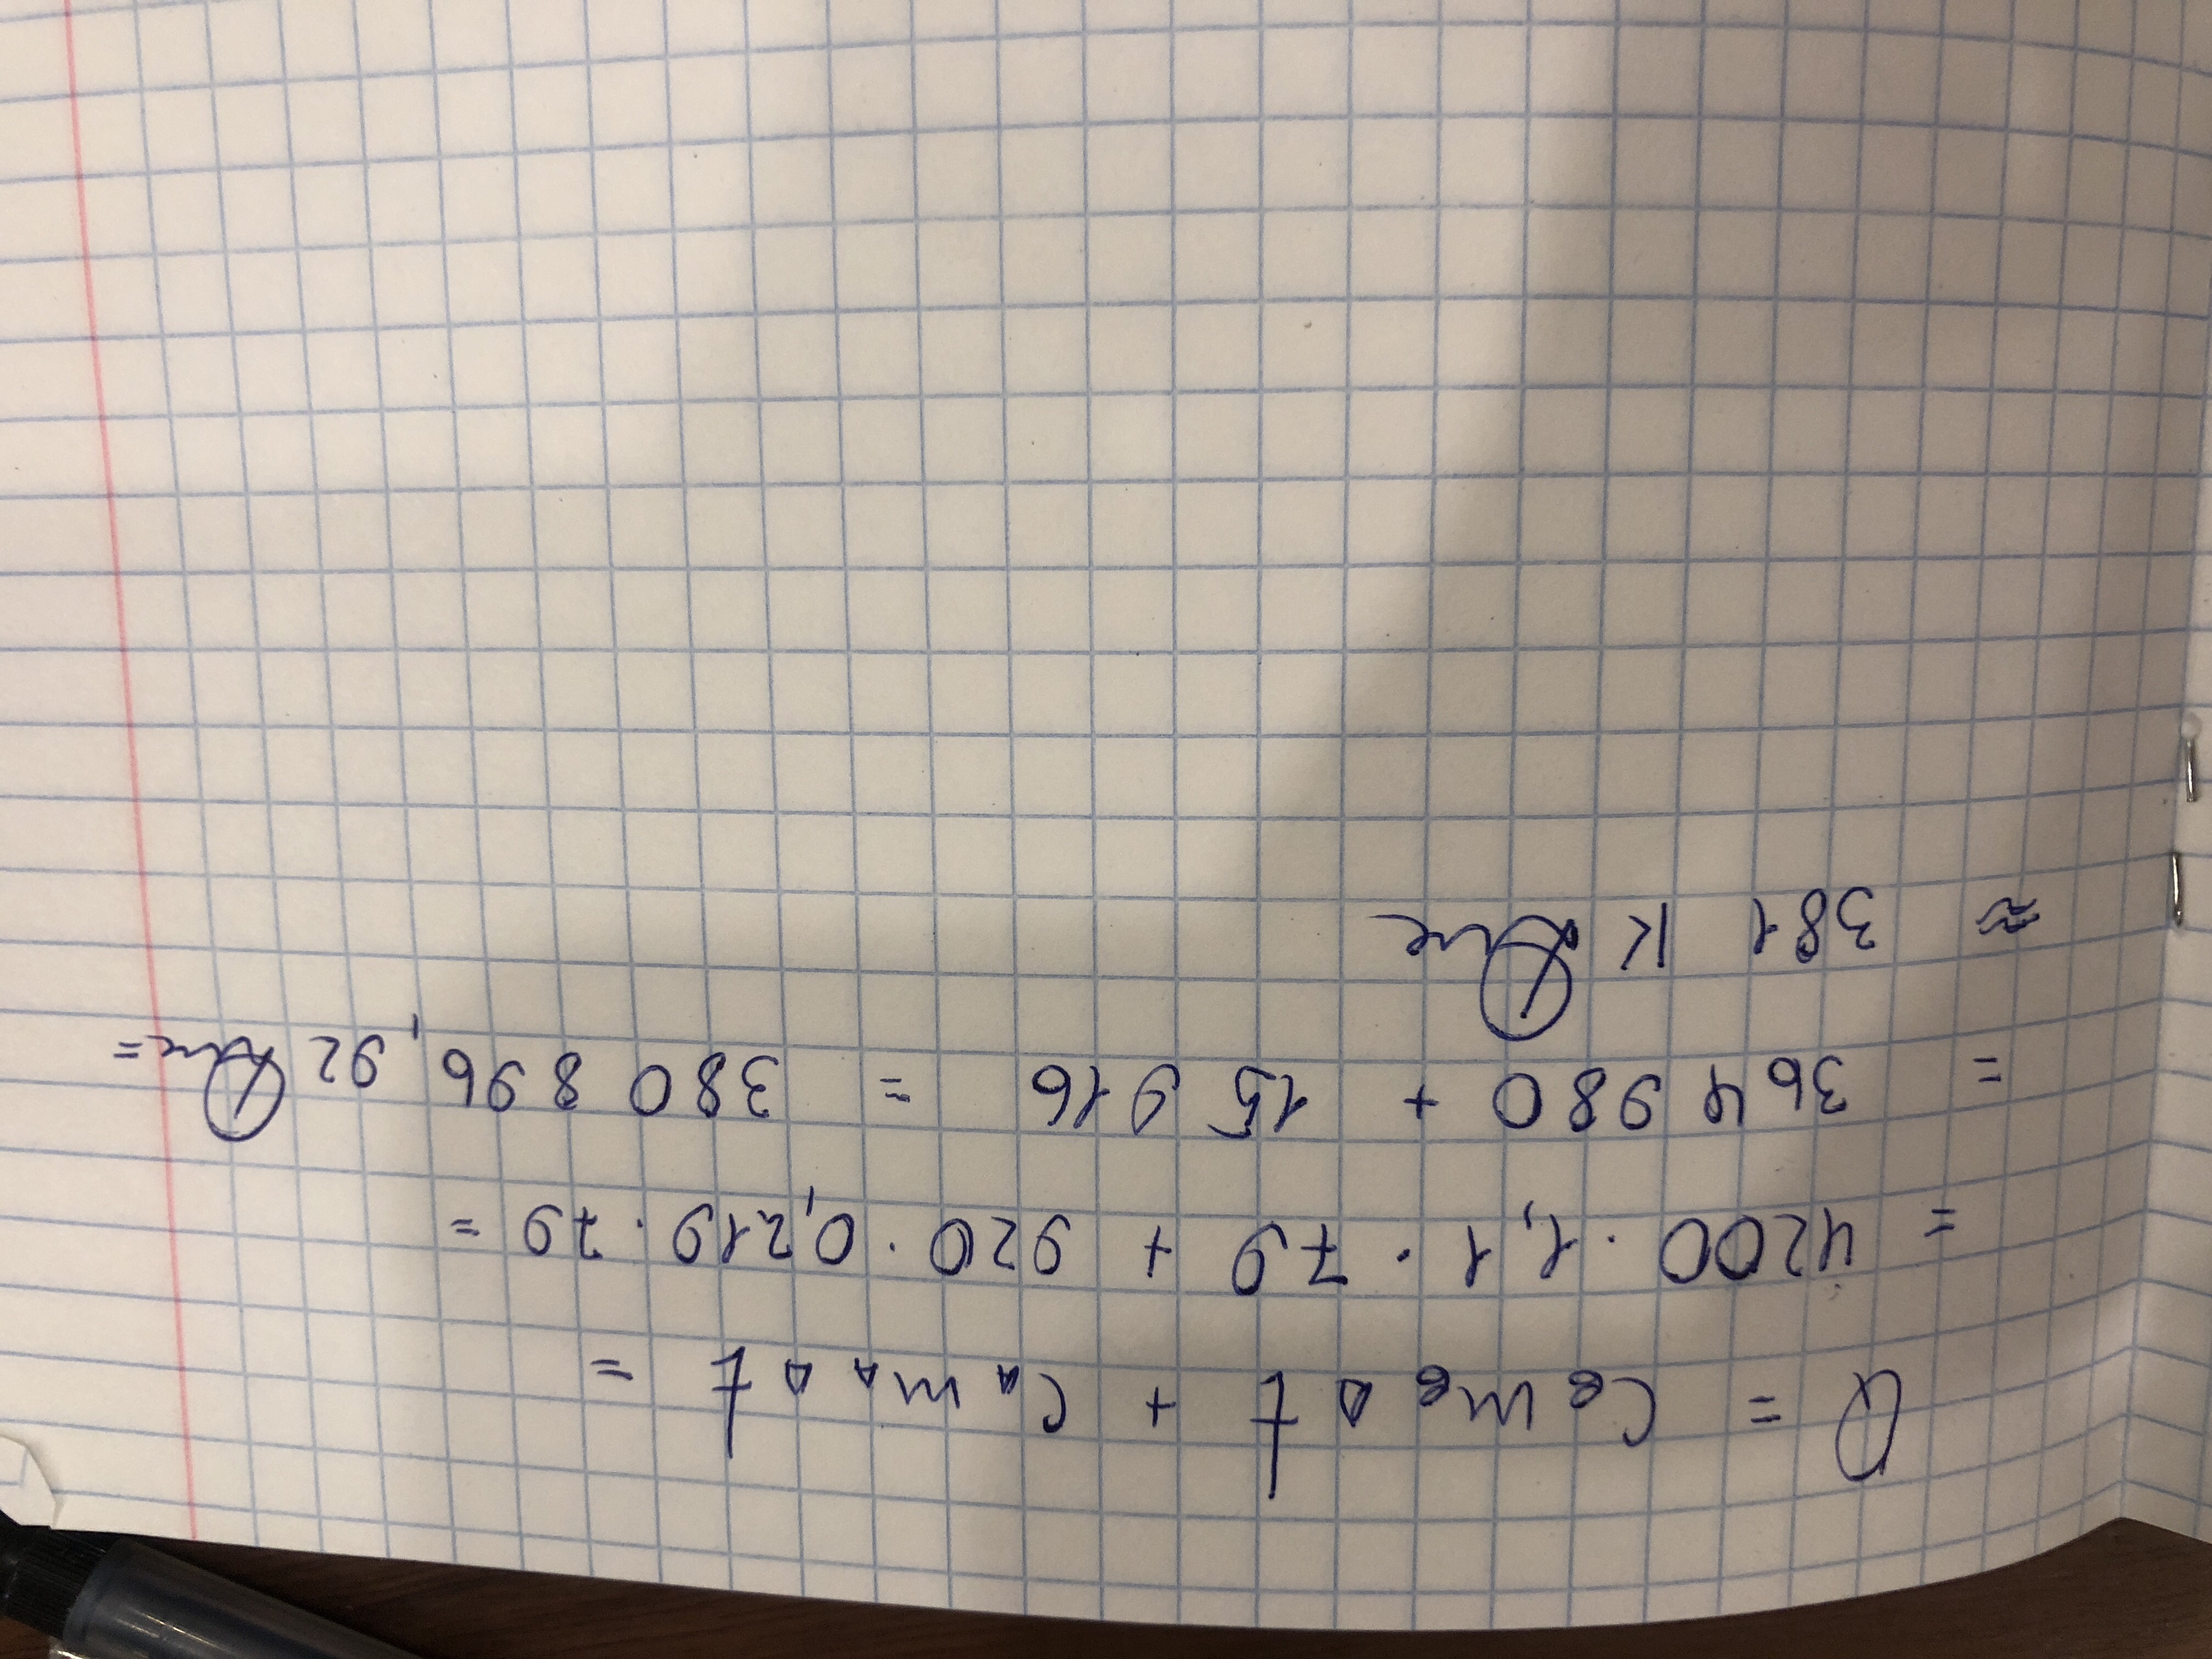 Q = cвmвΔt + cаmаΔt =
= 4200 · 1,1 · 79 + 920 · 0,219 · 79 =
= 364 980 + 15 916 = 380 896,92 Дж =
≈ 381 кДж